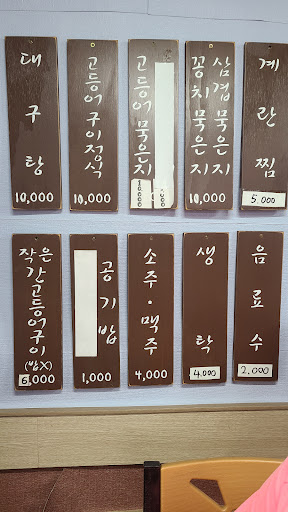 대구탕
10,000
고등어구이정식
10,000
고등어묵은지
10,000
삼겹묵은지
꽁치묵은지
10,000
계란찜
5.000
작은
간고등어구이
(밥X)
6,000
공기밥
1,000
소주·맥주
4,000
생탁
4.000
음료수
2.000